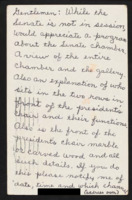 Gentlemen: While the
Senate is not in session
would appreciate a program
about the Senate chamber
A view of the entire
chamber and the gallery.
Also an explanation of who
sits in the two rows in
front of the presidents
chair and their functions
Also is the front of the
presidents their marble
or carved wood and all
such details. If you do
this please notify me of
date, time and which channel